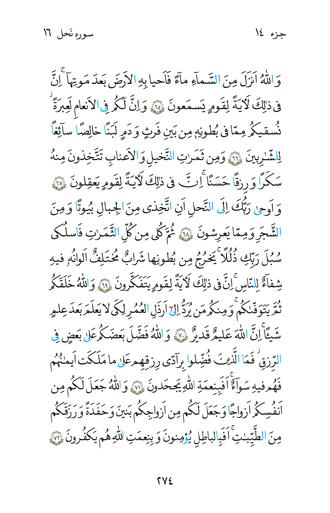 جزء ١٤
سوره نَحل ١٦
وَاللهُ اَنزَلَ مِنَ السَّمآءِ مآءً فَاَحيا بِهِ الاَرضَ بَعدَ مَوتِها ۚ اِنَّ
فى ذٰلِكَ لَآيَةً لِقَومٍ يَسمَعونَ ٦٥ وَ اِنَّ لَكُم فِى الاَنعامِ لَعِبرَةً ۖ
نُسقيكُم مِمّا فى بُطونِهِ مِن بَينِ فَرثٍ وَ دَمٍ لَبَنًا خالِصًا سآئِغًا
لِلشّٰرِبينَ ٦٦ وَ مِن ثَمَرٰتِ النَّخيلِ وَ الاَعنابِ تَتَّخِذونَ مِنهُ
سَكَرًا وَ رِزقًا حَسَنًا ۗ اِنَّ فى ذٰلِكَ لَآيَةً لِقَومٍ يَعقِلونَ ٦٧
وَ اَوحىٰ رَبُّكَ اِلَى النَّحلِ اَنِ اتَّخِذى مِنَ الجِبالِ بُيوتًا وَ مِنَ
الشَّجَرِ وَ مِمّا يَعرِشونَ ٦٨ ثُمَّ كُلى مِن كُلِّ الثَّمَرٰتِ فَاسلُكى
سُبُلَ رَبِّكِ ذُلُلًا ۚ يَخرُجُ مِن بُطونِها شَرابٌ مُختَلِفٌ اَلوانُهُ فيهِ
شِفآءٌ لِلنّاسِ ۗ اِنَّ فى ذٰلِكَ لَآيَةً لِقَومٍ يَتَفَكَّرونَ ٦٩ وَ اللهُ خَلَقَكُم
ثُمَّ يَتَوَفّىٰكُم ۚ وَ مِنكُم مَن يُرَدُّ اِلىٰٓ اَرذَلِ العُمُرِ لِكَى لا يَعلَمَ بَعدَ عِلمٍ
شَيئًا ۚ اِنَّ اللهَ عَليمٌ قَديرٌ ٧٠ وَ اللهُ فَضَّلَ بَعضَكُم عَلىٰ بَعضٍ فِى
الرِّزقِ ۚ فَمَا الَّذينَ فُضِّلوا بِرآدّى رِزقِهِم عَلىٰ ما مَلَكَت اَيمٰنُهُم
فَهُم فيهِ سَوآءٌ ۚ اَفَبِنِعمَةِ اللهِ يَجحَدونَ ٧١ وَ اللهُ جَعَلَ لَكُم مِن
اَنفُسِكُم اَزواجًا وَ جَعَلَ لَكُم مِن اَزواجِكُم بَنينَ وَ حَفَدَةً وَ رَزَقَكُم
مِنَ الطَّيِّبٰتِ ۚ اَفَبِالباطِلِ يُؤمِنونَ وَ بِنِعمَتِ اللهِ هُم يَكفُرونَ ٧٢
٢٧٤